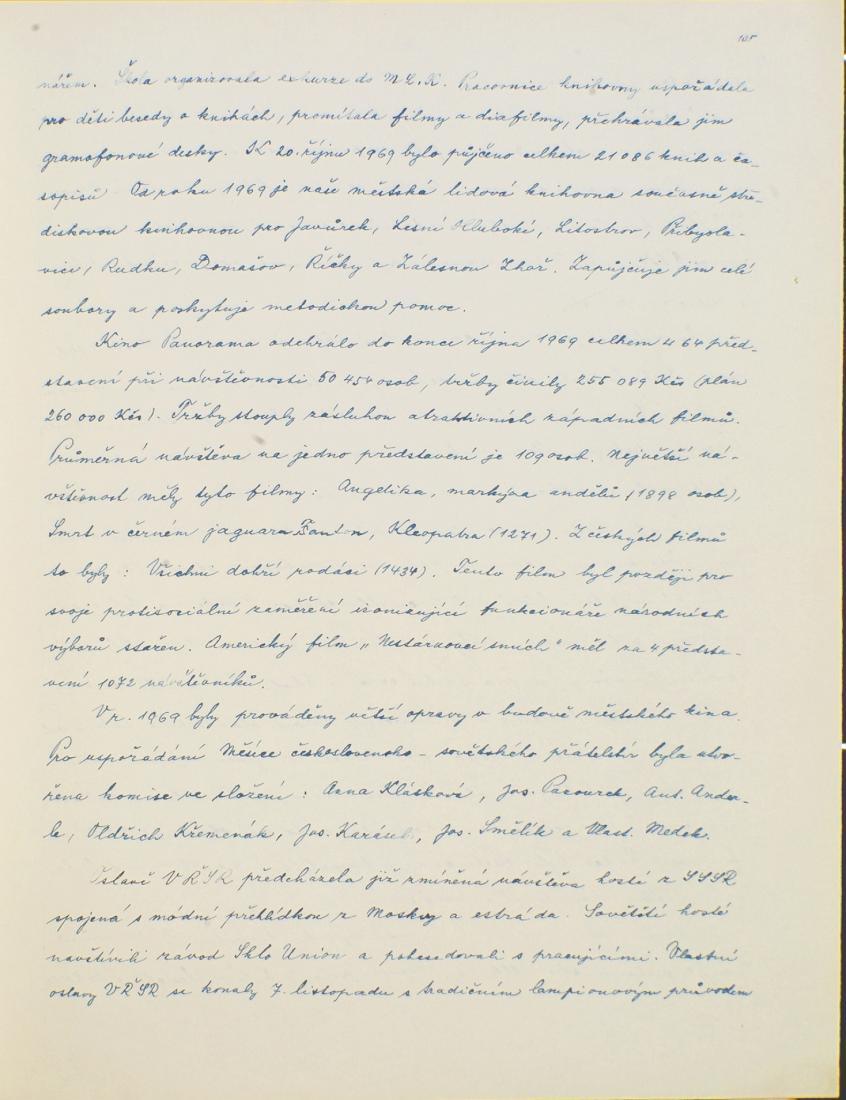 105
nářem. Škola organizovala exkurze do M L. K. Pracovnice knihovny uspořádala
pro děti besedy o knihách, promítala filmy a diafilmy, přehrávala jim
gramofonové desky. K 20. říjnu 1969 bylo půjčeno celkem 21 086 knih a ča-
sopisů Od roku 1969 je naše městská lidová knihovna současně stře-
diskovou knihovnou pro Javůrek, Lesní Hluboké, Litostrov, Přibysla-
vici, Rudku, Domašov, Říčky a Zálesnou Zhoř. Zapůjčuje jim celé
soubory a poskytuje metodickou pomoc.
Kino Panorama odehrálo do konce října 1969 celkem 464 před-
stavení při návštěvnosti 50 454 osob, tržby činily 255 089 Kčs (plán
260 000 Kčs). Tržby stouply zásluhou atraktivních západních filmů.
Průměrná návštěva na jedno představení je 109 osob. Největší ná-
vštěvnost měly tyto filmy: Angelika, markýza andělů (1898 osob),
Smrt v černém jaguaru, Kleopatra (1271). Z českých filmů
to byly: Všichni dobří rodáci (1434). Tento film byl později pro
svoje protisociální zaměření ironizující funkcionáře národních
výborů stažen. Americký film „Nestárnoucí smích" měl za 4 předsta-
vení 1072 návštěvníků.
V r. 1969 byly prováděny větší opravy v budově městského kina.
Pro uspořádání Měsíce československo - sovětského přátelství byla utvo-
řena komise ve složení: Anna Klásková, Jos. Pacourek, Ant. Ander-
le, Oldřich Křemenák, Jos. Karásek, Jos. Smělík a Vlast. Medek.
Oslavě VŘSR předcházela již zmíněná návštěva hostí z SSSR
spojená s módní přehlídkou z Moskvy a estráda. Sovětští hosté
navštívili závod Sklo Union a pobesedovali s pracujícími. Vlastní
oslavy VŘSR se konaly 7. listopadu s tradičním lampionovým průvodem